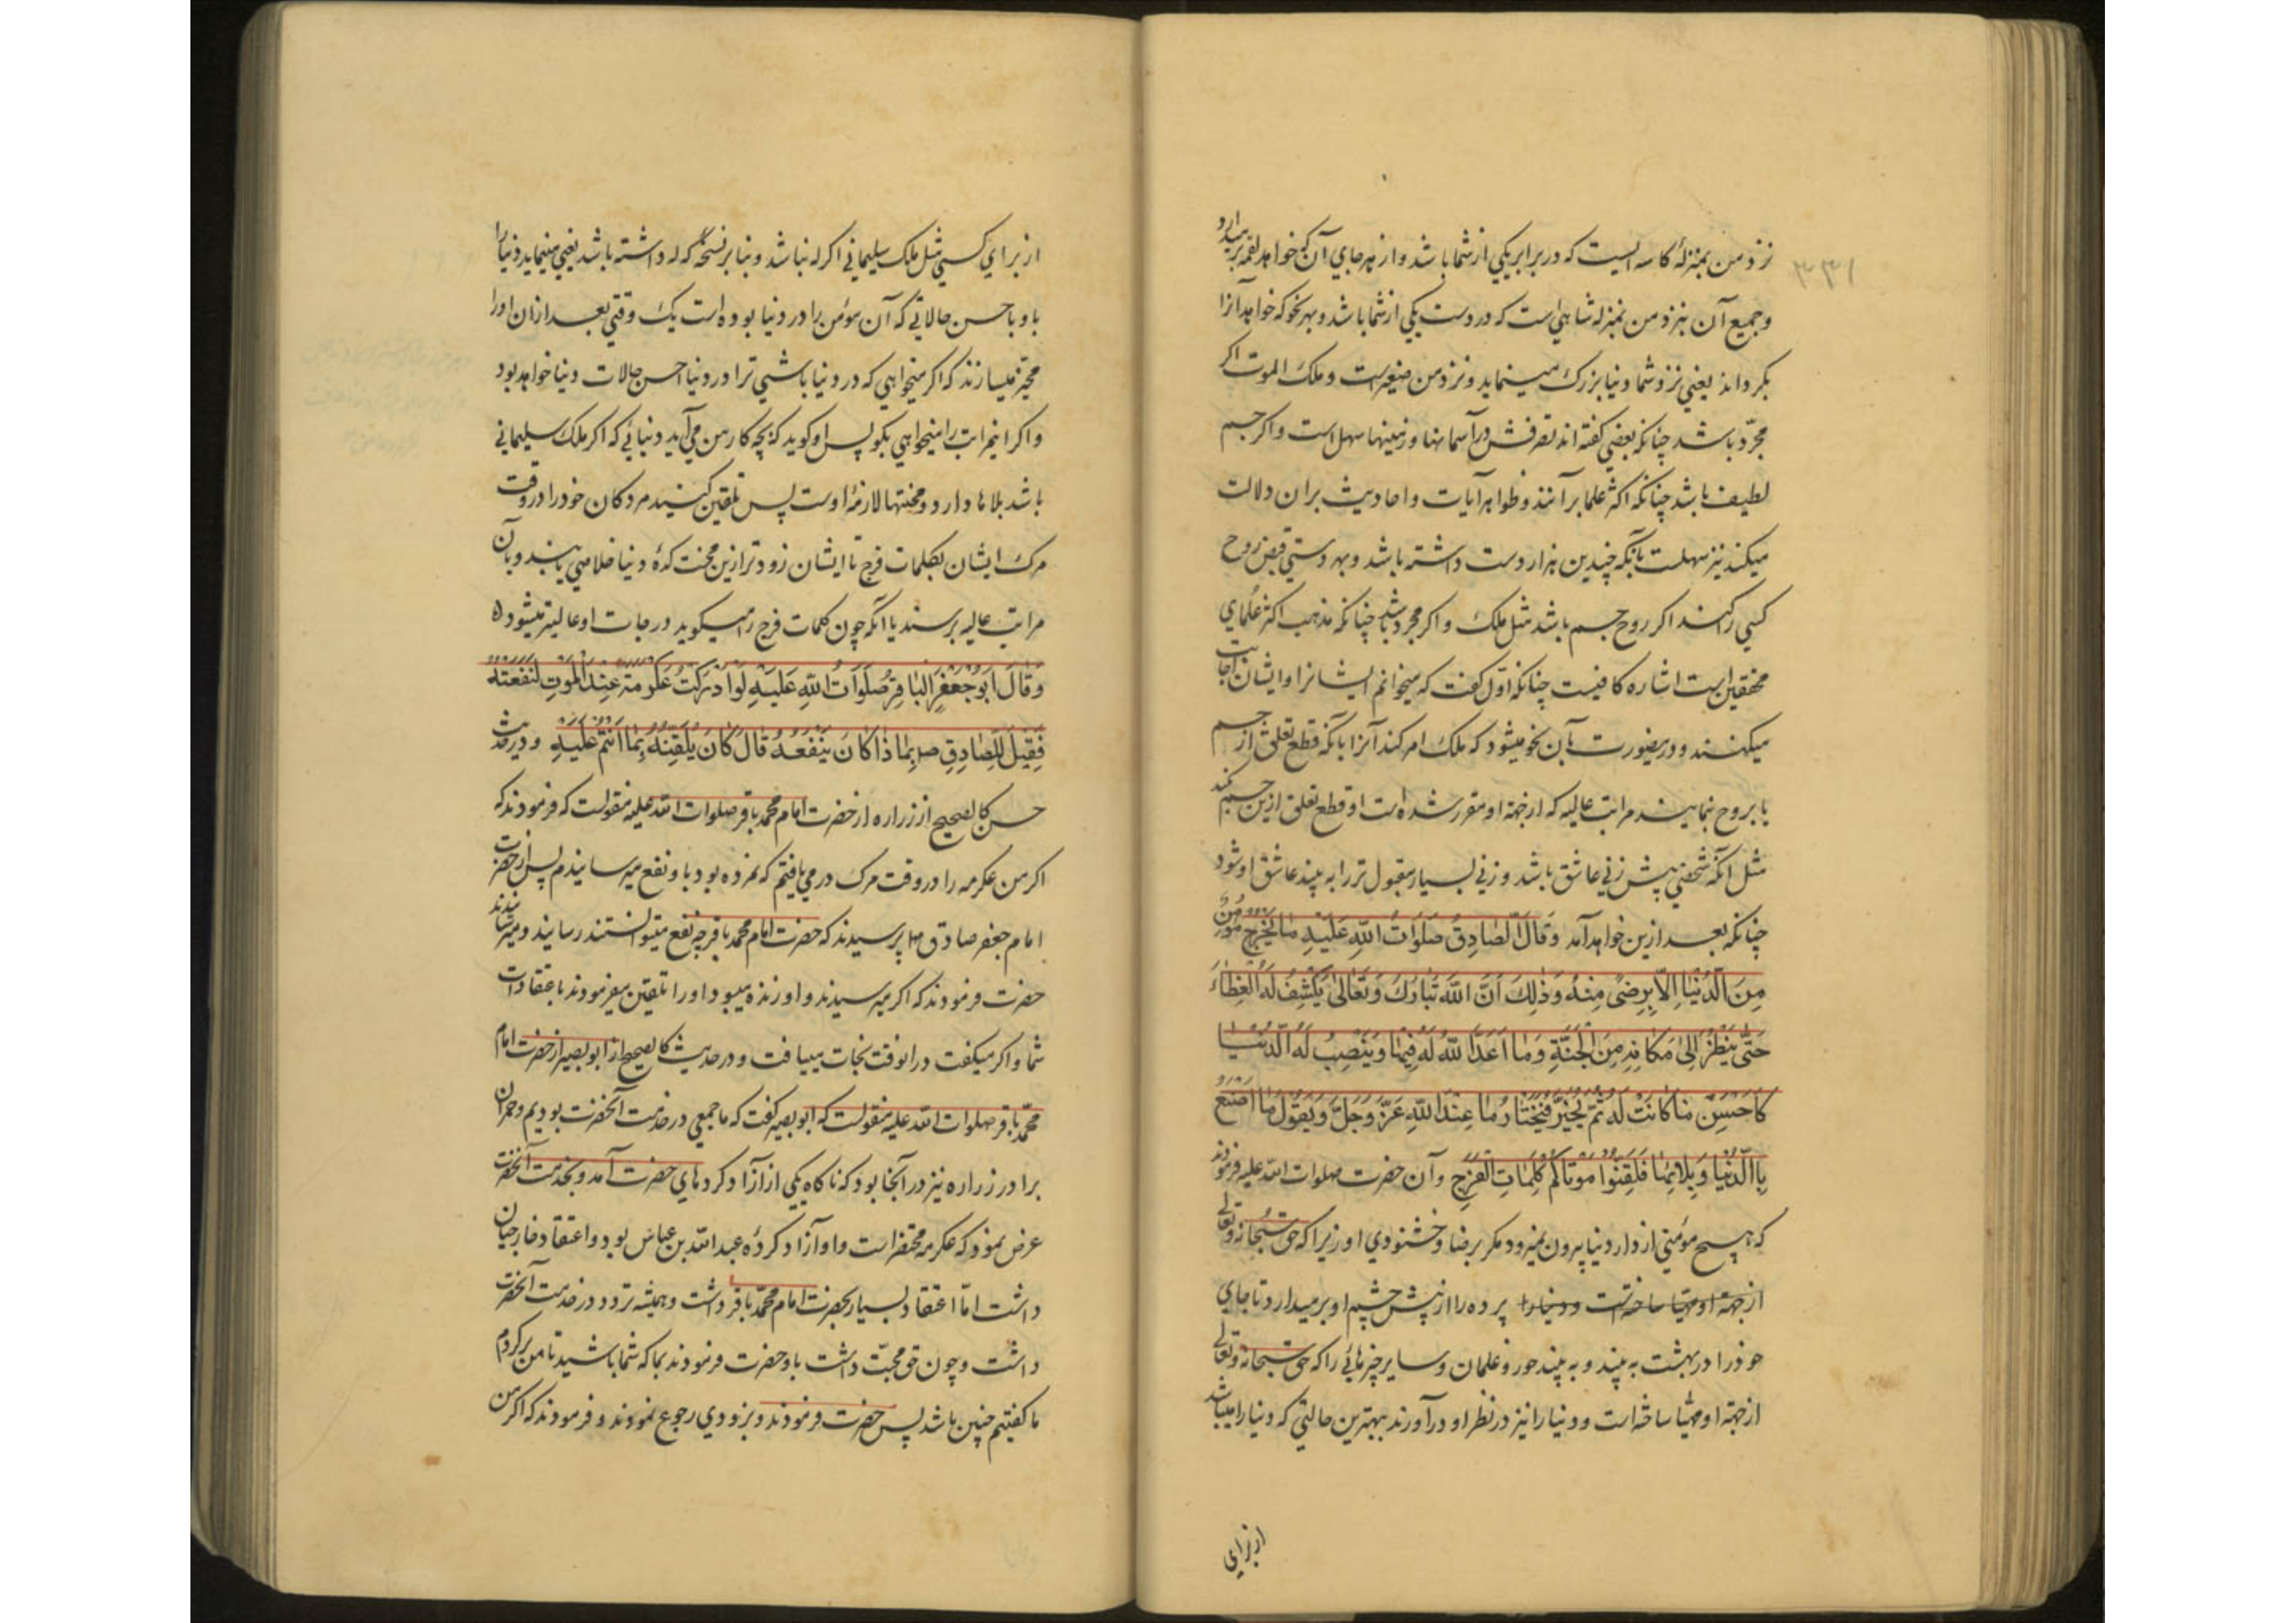 نزد من بمنزلهٔ کاسه ایست که در برابر یکی از شما باشد و از هر جای آن که خواهد لقمه بر میدارد
۳۳۱
و جمیع آن نیز نزد من بمنزله شاهی است که در دست یکی از شما باشد و بهر نحو که خواهد آنرا
بگرداند یعنی نزد شما دنیا بزرگ مینماید و نزد من صغیر است و ملک الموت اگر
مجرّد باشد چنانکه بعضی گفته اند تصرفش در آسمانها و زمینها سهل است و اگر جسم
لطیف باشد چنانکه اکثر علما برآنند و ظواهر آیات و احادیث بران دلالت
میکند نیز سهلست بآنکه چندین هزار دست داشته باشد و بهر دستی قبض روح
کسی را کند اگر روح جسم باشد مثل ملک و اگر مجرد باشد چنانکه مذهب اکثر علمای
محققین است اشاره کافیست چنانکه اوّل گفت که میخوانم ایشانرا و ایشان اجابت
میکنند و درینصورت بآن نحو میشود که ملک امر کند آنرا بآنکه قطع تعلق از جسم
یا بروح نمایند مراتب عالیه که از جهة او مقرر شده است او قطع تعلق ازین جسم کند
مثل آنکه شخصی پیش زنی عاشق باشد و زنی بسیار مقبول تر را به بیند عاشق او شود
چنانکه بعد ازین خواهد آمد وَقَالَ الصَّادِقُ صَلَوَاتُ اللّٰهِ عَلَیْهِ مَا یَخْرُجُ مُؤْمِنٌ
مِنَ الدُّنْیَا اِلَّا بِرِضًی مِنْهُ وَذٰلِکَ اَنَّ اللّٰهَ تَبَارَکَ وَتَعَالٰی یَکْشِفُ لَهُ الْغِطَاءَ
حَتّٰی یَنْظُرَ اِلٰی مَکَانِهِ مِنَ الْجَنَّةِ وَمَا اَعَدَّ اللّٰهُ لَهُ فِیهَا وَیَنْصِبُ لَهُ الدُّنْیَا
کَاَحْسَنِ مَا کَانَتْ لَهُ ثُمَّ یُخَیَّرُ فَیَخْتَارُ مَا عِنْدَ اللّٰهِ عَزَّ وَجَلَّ وَیَقُولُ مَا اَصْنَعُ
بِالدُّنْیَا وَبَلَائِهَا فَلَقِّنُوا مَوْتَاکُمْ کَلِمَاتِ الْفَرَجِ و آن حضرت صلوات اللّه علیه فرمودند
که هیچ مؤمنی از دار دنیا بیرون نمیرود مگر برضا و خشنودی او زیرا که حق سبحانه و تعالی
از جهة او مهیّا ساخته است و دنیا را پرده را از پیش چشم او بر میدارد تا جای
خود را در بهشت به بیند و به بیند حور و غلمان و سایر چیزهائی را که حق سبحانه و تعالی
از جهة او مهیّا ساخته است و دنیا را نیز در نظر او درآورند ببهترین حالتی که دنیا را میباشد
از برای
از برای کسی مثل ملک سلیمانی اگر له نباشد و بنا بر نسخهٔ که له داشته باشد یعنی مینماید دنیا را
باو باحسن حالاتی که آن مؤمن را در دنیا بوده است یک وقتی بعد ازان او را
مخیّر میسازند که اگر میخواهی که در دنیا باشی ترا در دنیا احسن حالات دنیا خواهد بود
و اگر این مراتب را میخواهی بگو پس او گوید که بچه کار من می آید دنیائی که اگر ملک سلیمانی
باشد بلاها دارد و محنتها لازمهٔ اوست پس تلقین کنید مردگان خود را در وقت
مرگ ایشان بکلمات فرج تا ایشان زودتر ازین محنت کدهٔ دنیا خلاصی یابند و بآن
مراتب عالیه برسند یا آنکه چون کلمات فرج را میگوید درجات او عالیتر میشود
وَقَالَ اَبُو جَعْفَرٍ الْبَاقِرُ صَلَوَاتُ اللّٰهِ عَلَیْهِ لَوْ اَدْرَکْتُ عِکْرِمَةَ عِنْدَ الْمَوْتِ لَنَفَعْتُهُ
فَقِیلَ لِلصَّادِقِ ص بِمَا ذَا کَانَ یَنْفَعُهُ قَالَ کَانَ یُلَقِّنُهُ بِمَا اَنْتُمْ عَلَیْهِ و در حدیث
حسن کالصحیح از زراره از حضرت امام محمد باقر صلوات اللّه علیه منقولست که فرمودند که
اگر من عکرمه را در وقت مرگ در می یافتم که نمرده بود باو نفع میرسانیدم پس از حضرت
امام جعفر صادق ص پرسیدند که حضرت امام محمد باقر چه نفع میتوانستند رسانید و میرسانیدند
حضرت فرمودند که اگر میرسیدند و او زنده میبود او را تلقین میفرمودند باعتقادات
شما و اگر میگفت در انوقت نجات مییافت و در حدیث کالصحیح از ابو بصیر از حضرت امام
محمّد باقر صلوات اللّه علیه منقولست که ابو بصیر گفت که ما جمعی در خدمت آنحضرت بودیم و حمران
برادر زراره نیز در آنجا بود که ناگاه یکی از آزاد کردهای حضرت آمد و بخدمت آنحضرت
عرض نمود که عکرمه محتضر است و او آزاد کردهٔ عبد اللّه بن عباس بود و اعتقاد خارجیان
داشت امّا اعتقاد بسیار بحضرت امام محمّد باقر داشت و همیشه تردد در خدمت آنحضرت
داشت و چون حق محبّت داشت باو حضرت فرمودند بما که شما باشید تا من برگردم
ما گفتیم چنین باشد پس حضرت فرمودند و بزودی رجوع نمودند و فرمودند که اگر من